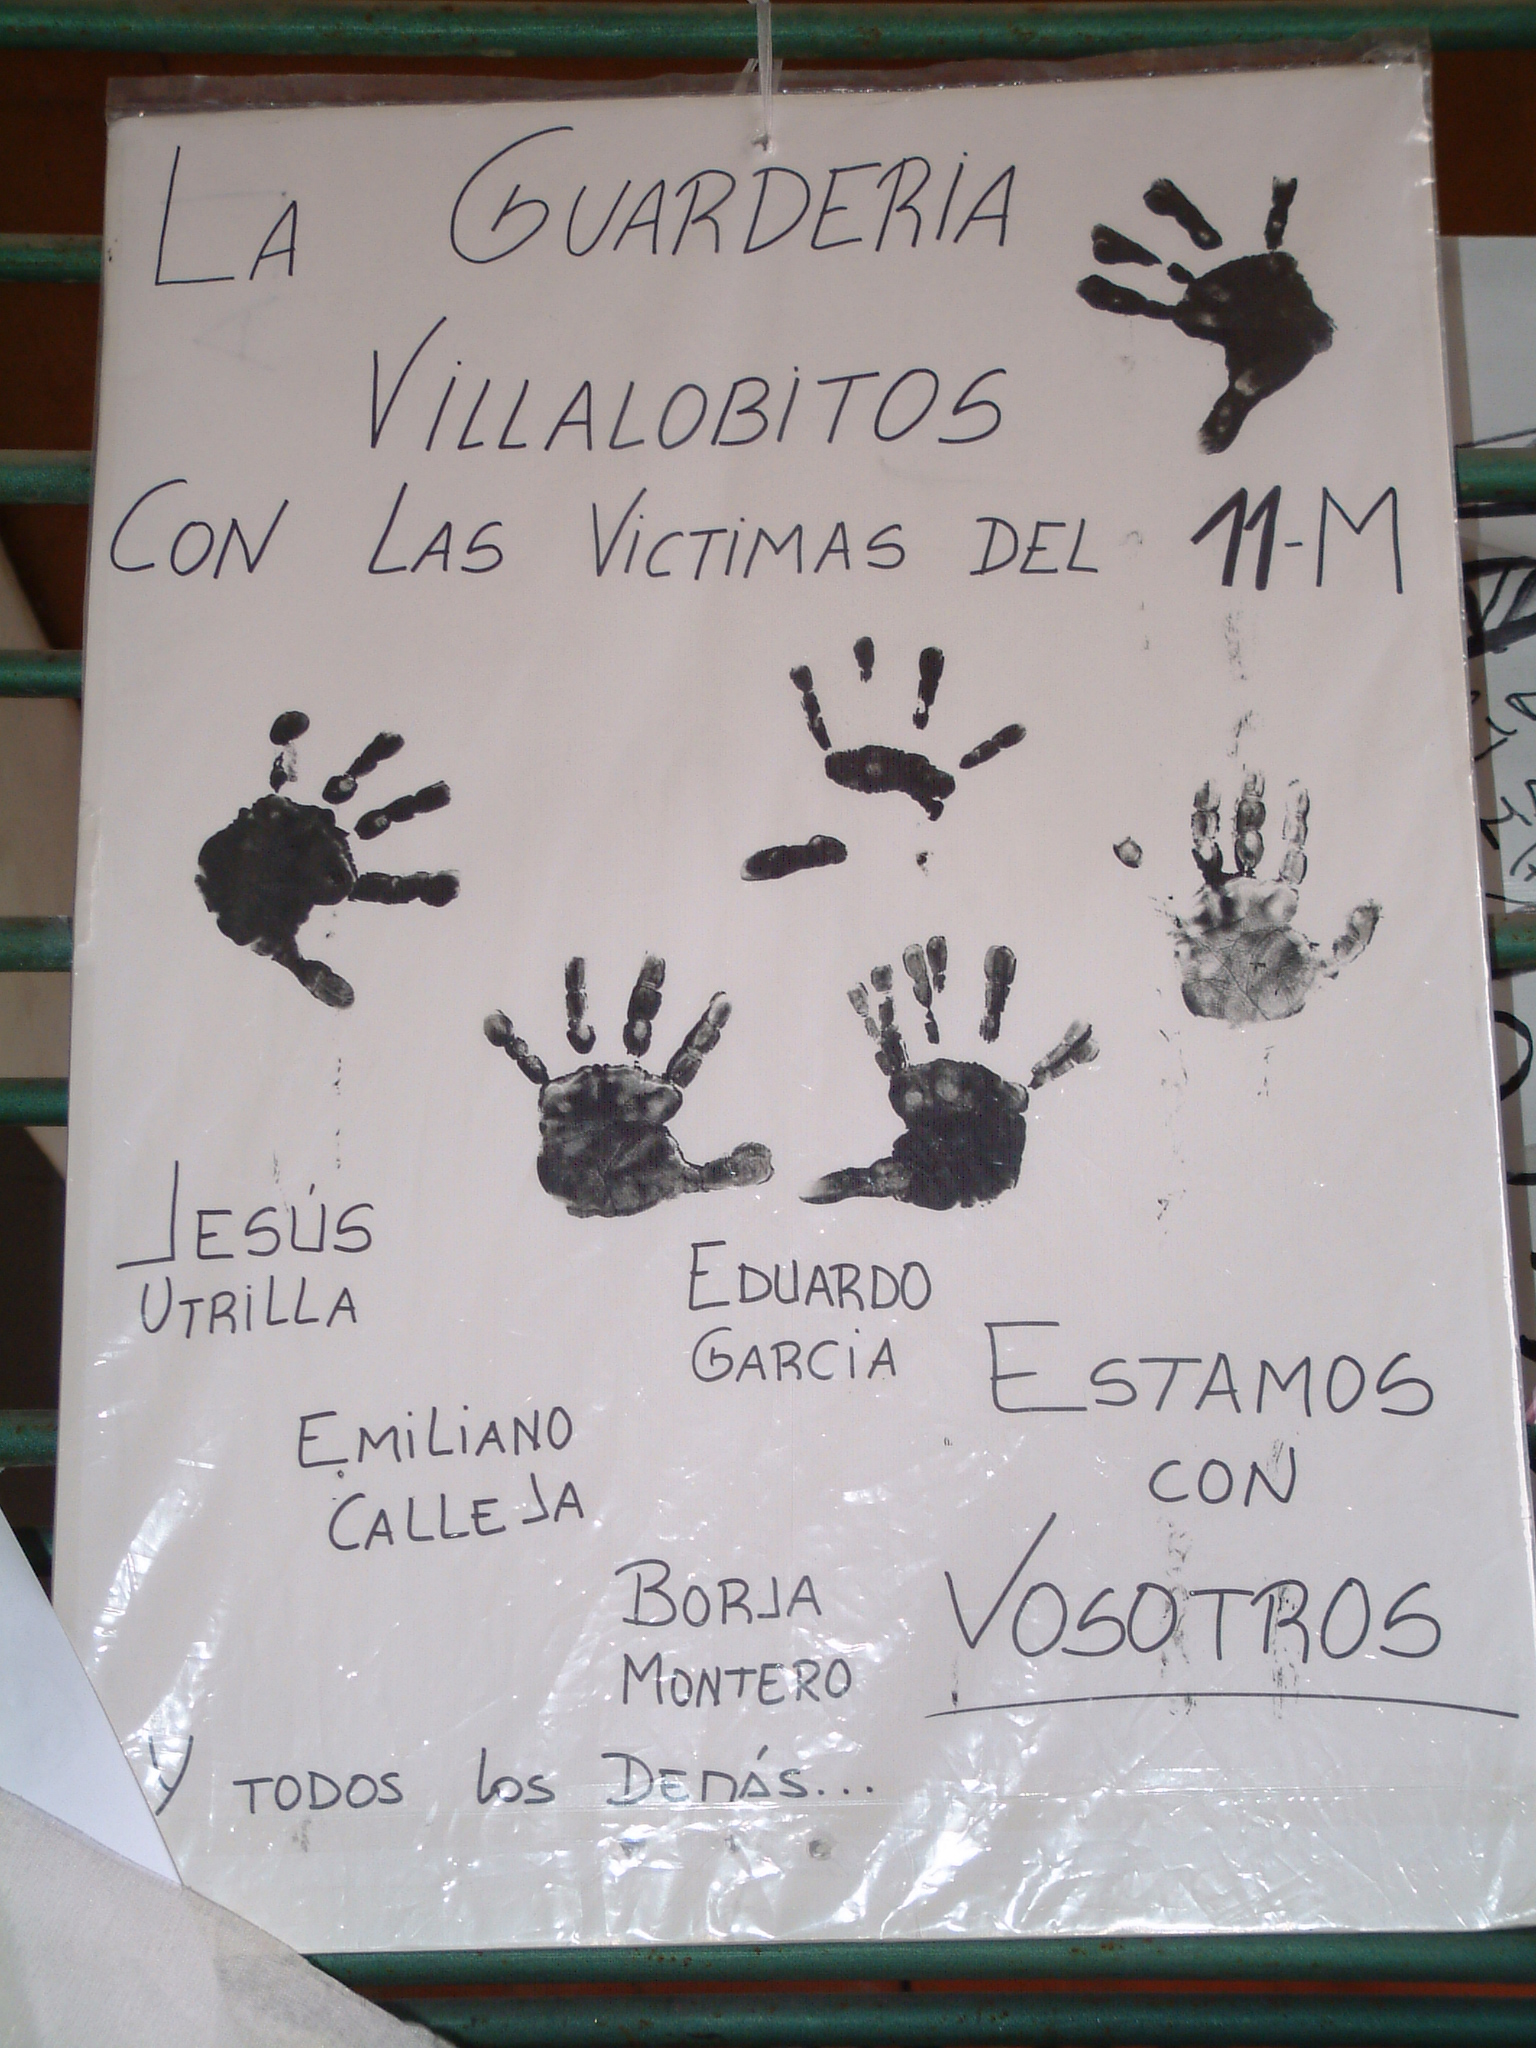 LA GUARDERIA
VILLALOBITOS
CON LAS VICTIMAS DEL 11-M
JESÚS
UTRILLA
EDUARDO
GARCIA
EMILIANO
CALLEJA
BORJA
MONTERO
ESTAMOS
CON
VOSOTROS
Y TODOS los DEMÁS...